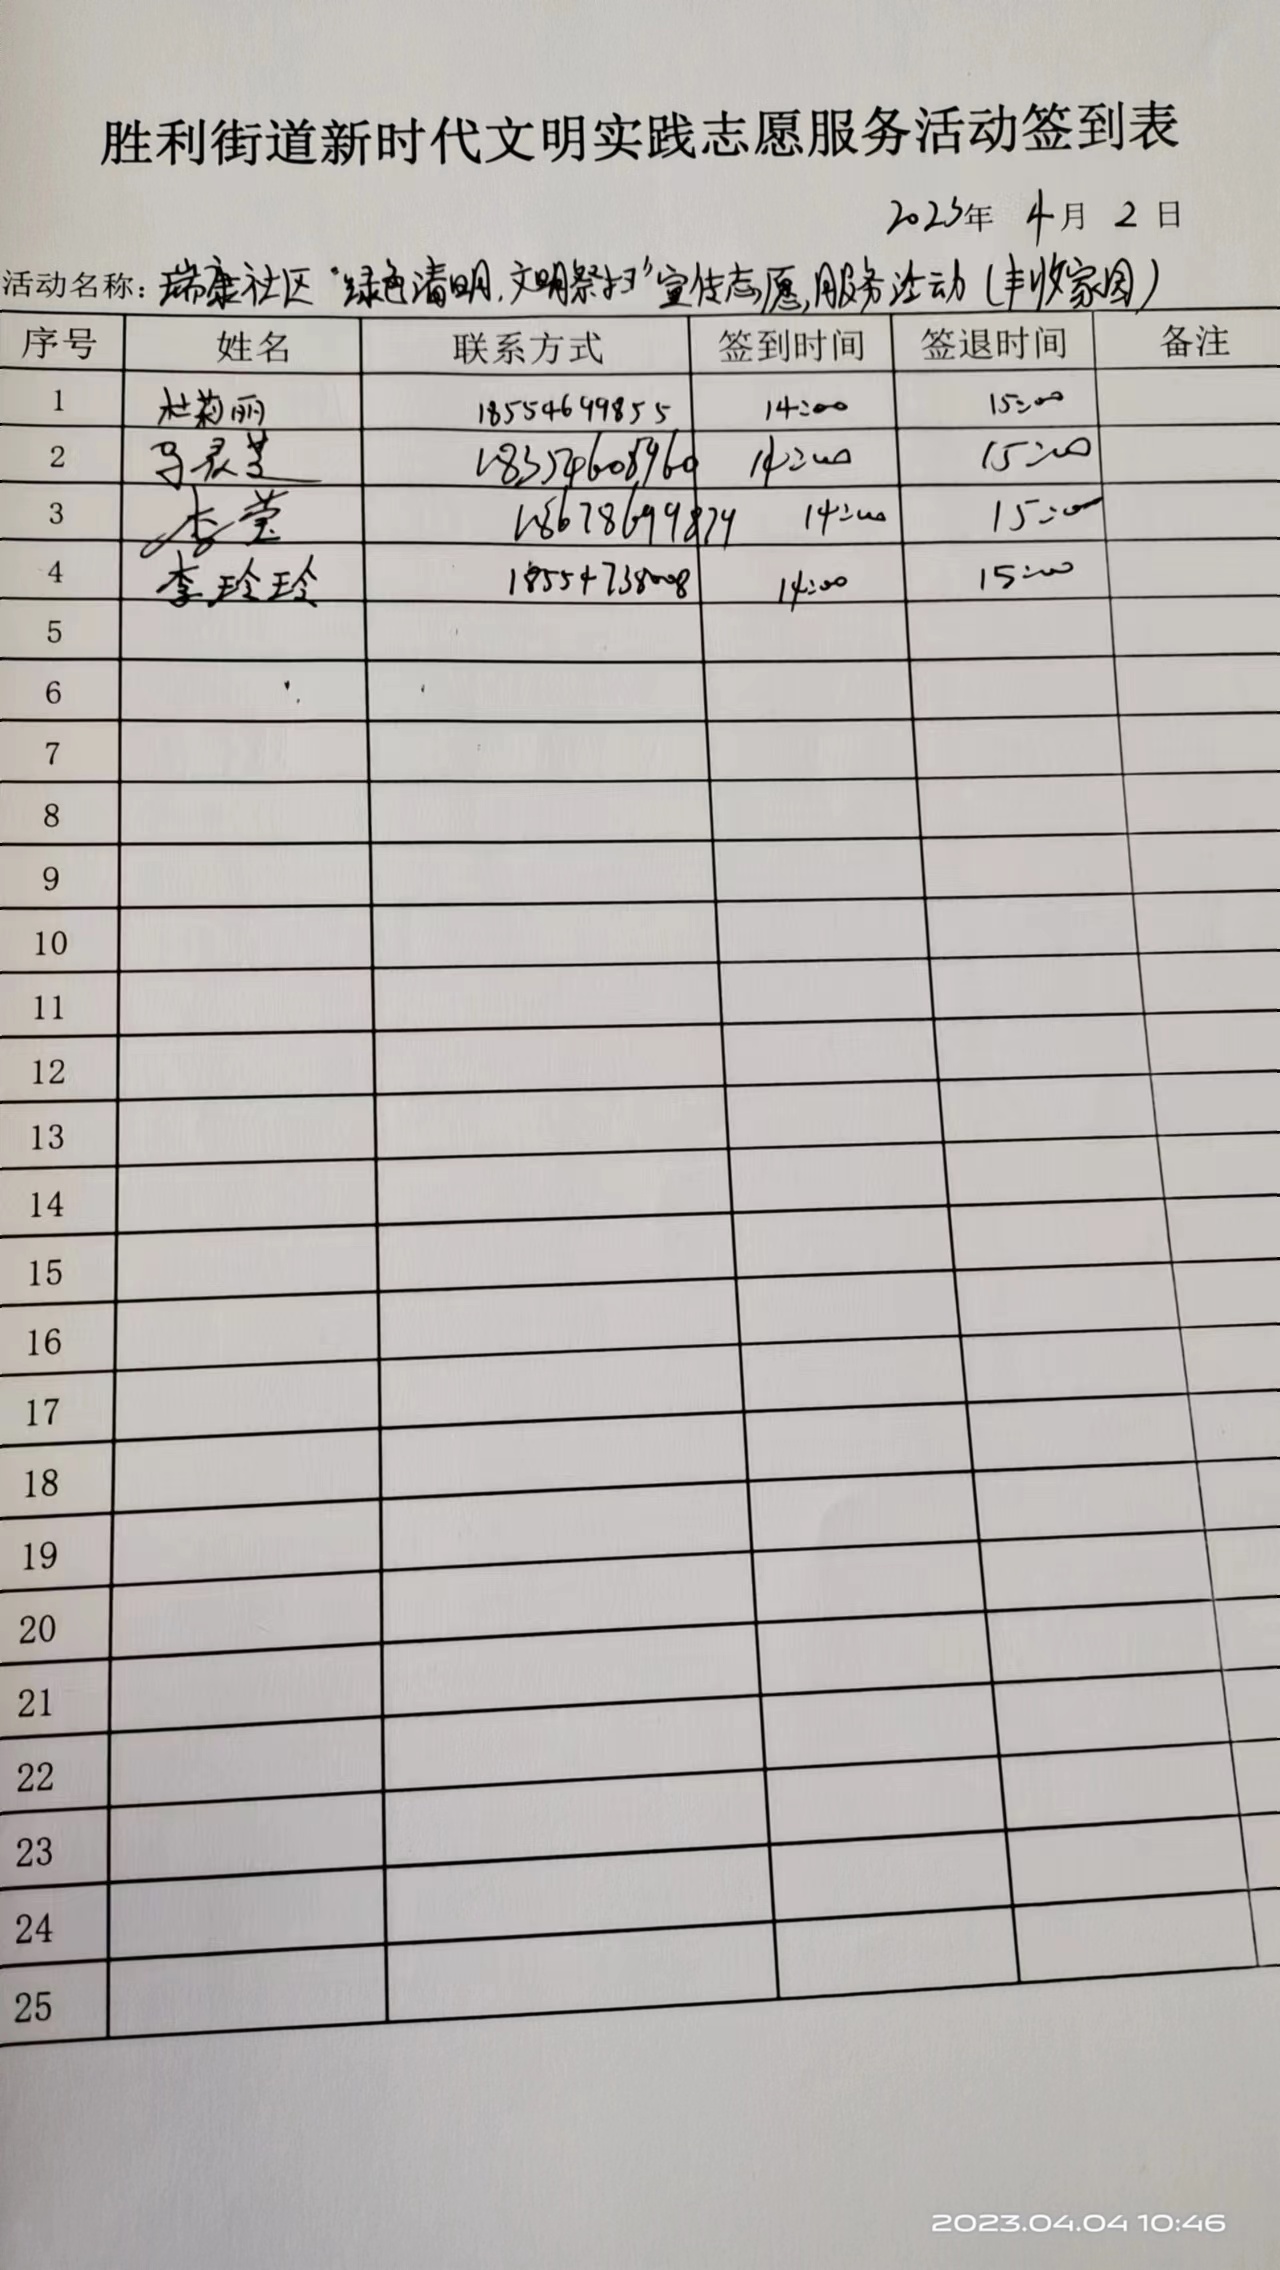 胜利街道新时代文明实践志愿服务活动签到表
2023年 4月 2日
活动名称：瑞康社区"绿色清明,文明祭扫"宣传志愿服务活动(丰收家园)
序号 姓名 联系方式 签到时间 签退时间 备注
1 杜莉丽 18554649855 14:00 15:00
2 马灵芝 18354608960 14:00 15:00
3 李莹 18678699879 14:00 15:00
4 李玲玲 18554738008 14:00 15:00
5
6
7
8
9
10
11
12
13
14
15
16
17
18
19
20
21
22
23
24
25
2023.04.04 10:46